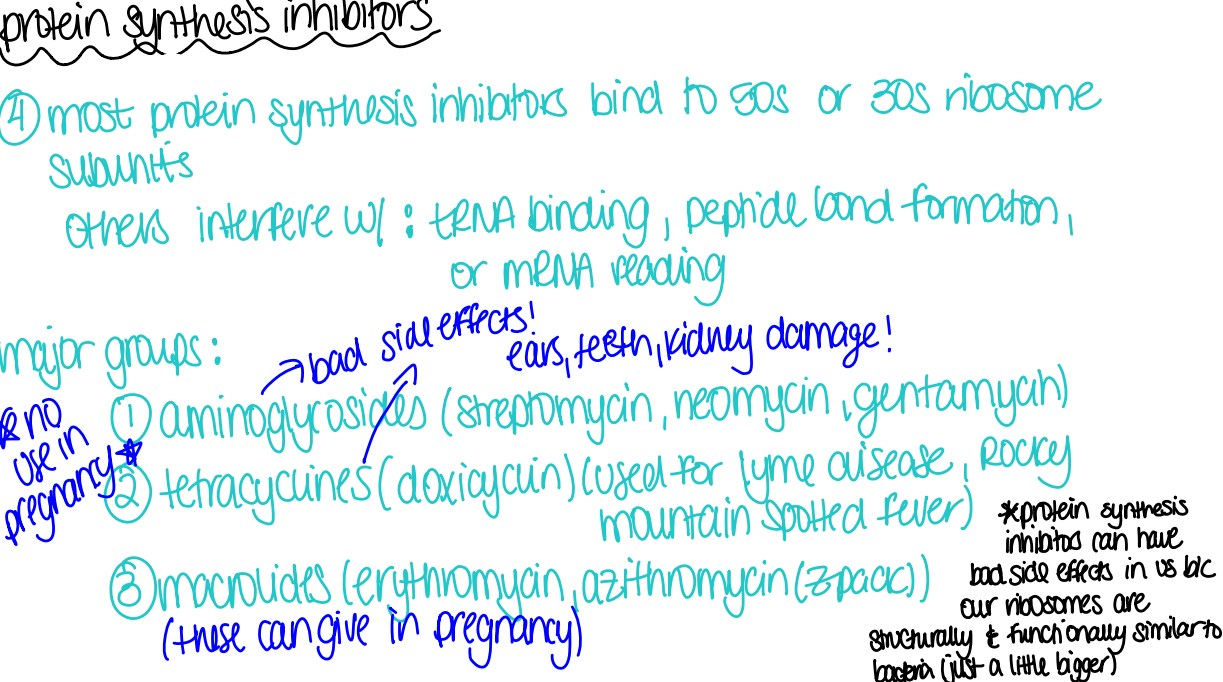 protein synthesis inhibitors
④ most protein synthesis inhibitors bind to 50s or 30s ribosome
subunits
others interfere w/ : tRNA binding, peptide bond formation,
or mRNA reading
major groups:
→ bad side effects!
ears, teeth, kidney damage!
* no
use in
pregnancy *
① aminoglycosides (streptomycin, neomycin, gentamycin)
② tetracyclines (doxicyclin) (used for lyme disease, Rocky
mountain spotted fever)
③ macrolides (erythromycin, azithromycin (zpack))
(these can give in pregnancy)
*protein synthesis
inhibitos can have
bad side effects in us b/c
our ribosomes are
structurally & functionally similar to
bacteria (just a little bigger)